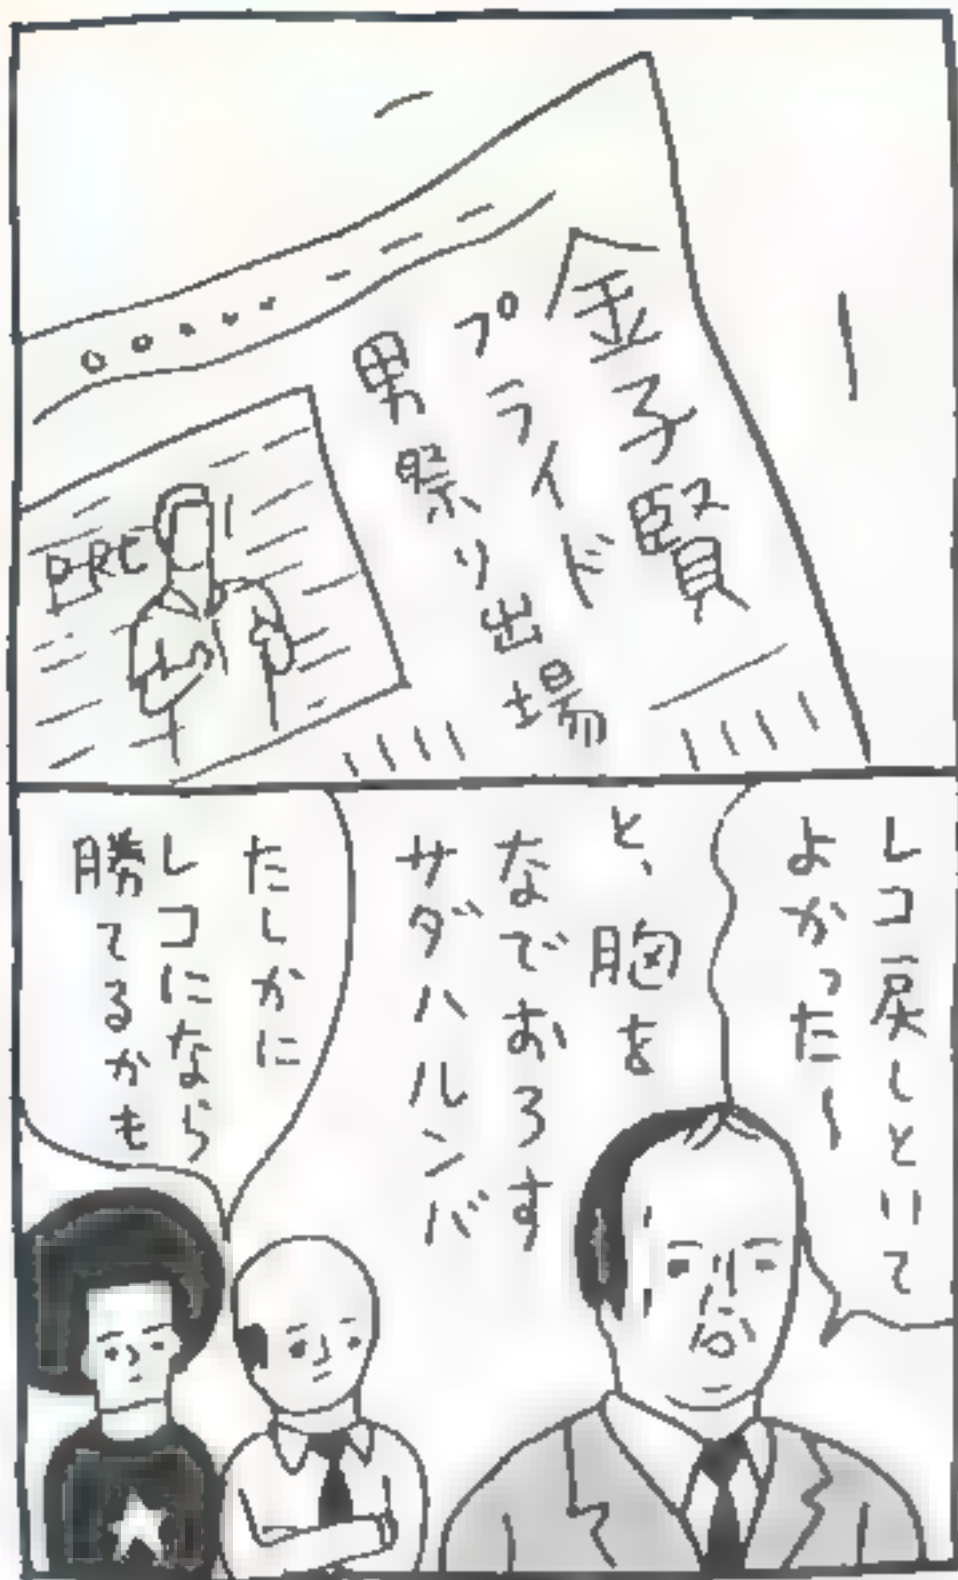 金子賢
プライド
男祭り出場
レコ戻しといて
よかった〜
と、胸を
なでおろす
サダハルンバ
たしかに
レコになら
勝てるかも